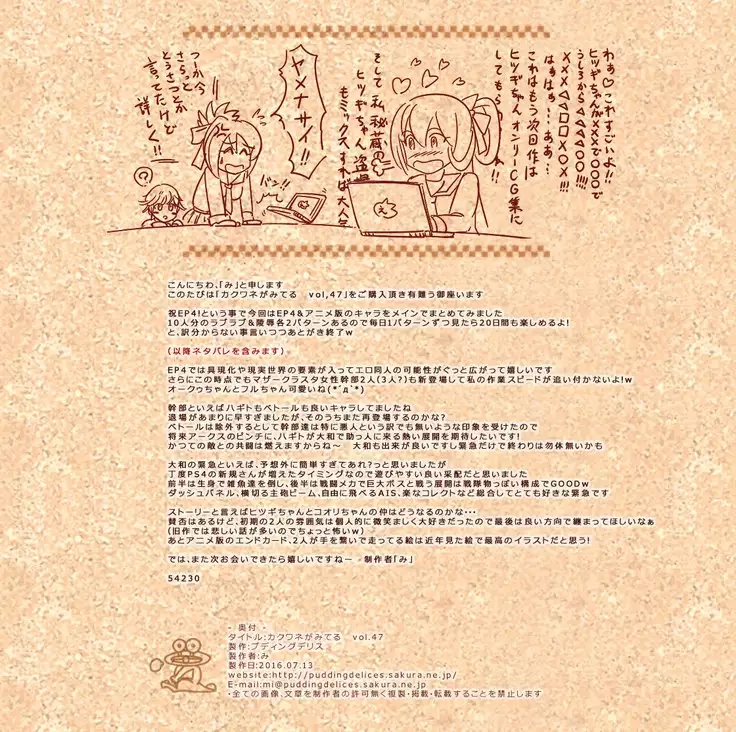 わぁ♡これすごいよ!!
ヒツギちゃんが×××で○○○で
うしろから△△△△◇○○!!!
×××△△□□×○×!!!
はぁはぁ…ああ…
これはもう次回作は
ヒツギちゃんオンリーCG集に
してもら
!!
そして私秘蔵の
ヒツギちゃん盗
もミックスすれば大人
ヤメナサイ!!
バン!!
つーか今
さらっと
とうさつとか
言ってたけど
詳しく!!
?
こんにちわ、「み」と申します
このたびは「カクワネがみてる　vol,47」をご購入頂き有難う御座います
祝EP4!という事で今回はEP4&アニメ版のキャラをメインでまとめてみました
10人分のラブラブ&陵辱各2パターンあるので毎日1パターンずつ見たら20日間も楽しめるよ!
と、訳分からない事言いつつあとがき終了w
(以降ネタバレを含みます)
EP4では具現化や現実世界の要素が入ってエロ同人の可能性がぐっと広がって嬉しいです
さらにこの時点でもマザークラスタ女性幹部2人(3人?)も新登場して私の作業スピードが追い付かないよ!w
オークゥちゃんとフルちゃん可愛いね(*´д`*)
幹部といえばハギトもベトールも良いキャラしてましたね
退場があまりに早すぎましたが、そのうちまた再登場するのかな?
ベトールは除外するとして幹部達は特に悪人という訳でも無いような印象を受けたので
将来アークスのピンチに、ハギトが大和で助っ人に来る熱い展開を期待したいです!
かつての敵との共闘は燃えますからね～　大和も出来が良いですし緊急だけで終わりは勿体無いかも
大和の緊急といえば、予想外に簡単すぎてあれ?っと思いましたが
丁度PS4の新規さんが増えたタイミングなので遊びやすい良い采配だと思いました
前半は生身で雑魚達を倒し、後半は戦闘メカで巨大ボスと戦う展開は戦隊物っぽい構成でGOODw
ダッシュパネル、横切る主砲ビーム、自由に飛べるAIS、楽なコレクトなど総合してとても好きな緊急です
ストーリーと言えばヒツギちゃんとコオリちゃんの仲はどうなるのかな・・・
賛否はあるけど、初期の2人の雰囲気は個人的に微笑ましく大好きだったので最後は良い方向で纏まってほしいなぁ
(旧作では悲しい話が多いのでちょっと怖いw)
あとアニメ版のエンドカード、2人が手を繋いで走ってる絵は近年見た絵で最高のイラストだと思う!
では、また次お会いできたら嬉しいですねー　制作者「み」
54230
- 奥付 -
タイトル:カクワネがみてる　vol.47
製作:プディングデリス
製作者:み
製作日:2016.07.13
website:http://puddingdelices.sakura.ne.jp/
E-mail:mi@puddingdelices.sakura.ne.jp
・全ての画像、文章を制作者の許可無く複製・掲載・転載することを禁止します